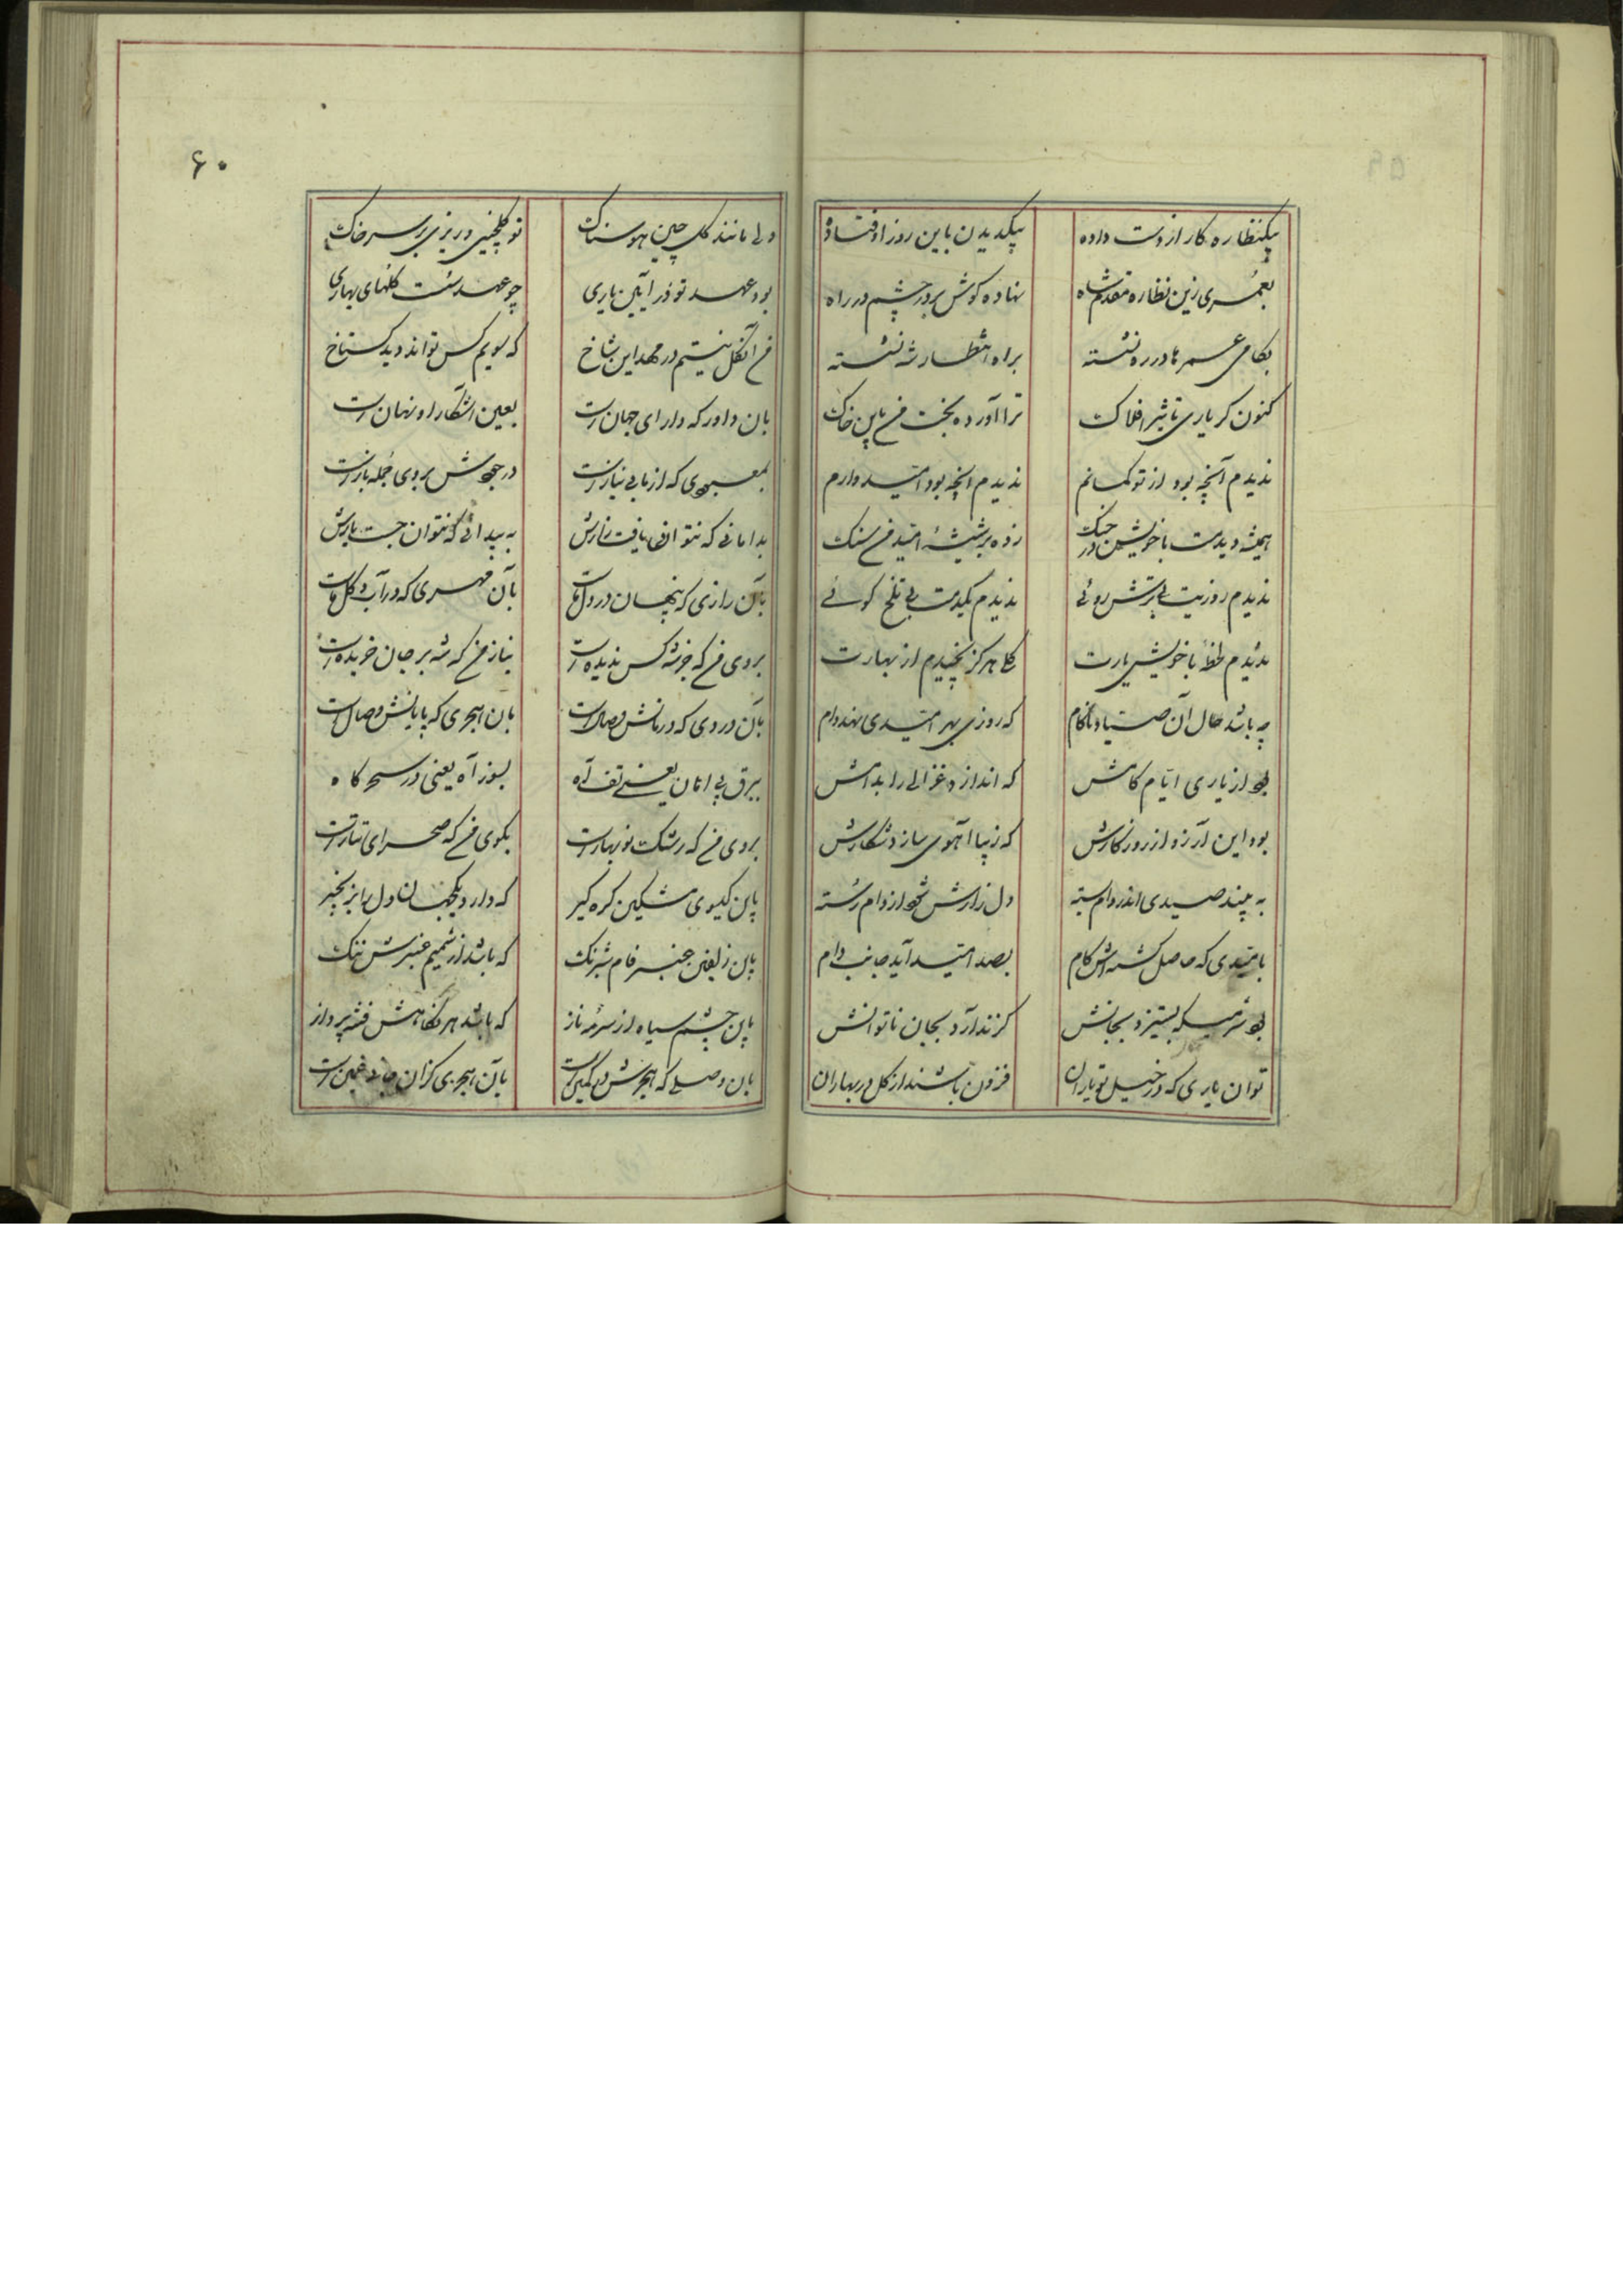 بیکنظاره کار از دست داده بیکدیدن باین روز اوفتاده
بعمری زین نظاره مقدم شاه نهاده کوش بر در چشم در راه
بکامی عمرها در ره نشسته براه انتظار شه نشسته
کنون کر یاری تاثیر افلاک ترا آورده بخت من باین خاک
ندیدم آنچه بود از تو کمانم ندیدم انچه بود امید دارم
همیشه دیدمت با خویش در جنک زده بر شیشهٔ امید من سنک
ندیدم روزیت بی ترش روئی ندیدم یکدمت بی تلخ کوئی
ندیدم لحظهٔ با خویش یارت کلی هرکز نچیدم از بهارت
چه باشد حال آن صیاد ناکام که روزی بهر امیدی نهد دام
بود از یاری ایام کامش که اندازد غزالی را بدامش
بود این آرزو از روزکارش که زیبا آهوی سازد شکارش
به بیند صیدی اندر دام بسته دل زارش شود از دام رسته
بامیدی که حاصل کشته اش کام بصد امید آید جانب دام
بود شیریکه بستیزد بجانش کزند آرد بجان ناتوانش
تو آن یاری که در خیل تو یاران فزون باشند از کل در بهاران
۶۰
ولی مانند کل چین هوسناک تو کلچینی و ریزی بر سر خاک
بود عهد تو در آیین یاری چو عهد سست کلهای بهاری
من آنکل نیستم در مهد این شاخ که سویم کس تواند دید کستاخ
بان داور که دارای جهان است بعین آشکارا و نهان است
بمعبودی که از ما بی نیاز است در جودش بروی جمله باز است
بدامانی که نتوانی یافت رازش به پیدائی که نتوان جست بازش
بآن رازی که پنهان در دل ماست بآن مهری که در آب و کل ماست
بروی من که جز شه کس ندیده است بناز من که شه بر جان خریده است
بآن دردی که درمانش وصال است بان هجری که پایانش وصال است
ببرق بی امان یعنی تف آه بسوز آه یعنی در سحرکاه
بروی من که رشک نوبهار است بکوی من که صحرای تتار است
باین کیسوی مشکین کره کیر که دارد یکجهان دل را بزنجیر
باین زلفین چنبر فام شبرنک که باشد از شمیم عنبرش ننک
باین چشم سیاه از سرمهٔ ناز که باشد هر نکاهش فتنه پرداز
بان وصلی که هجرش در کمین است بآن هجری کزان جانم غمین است